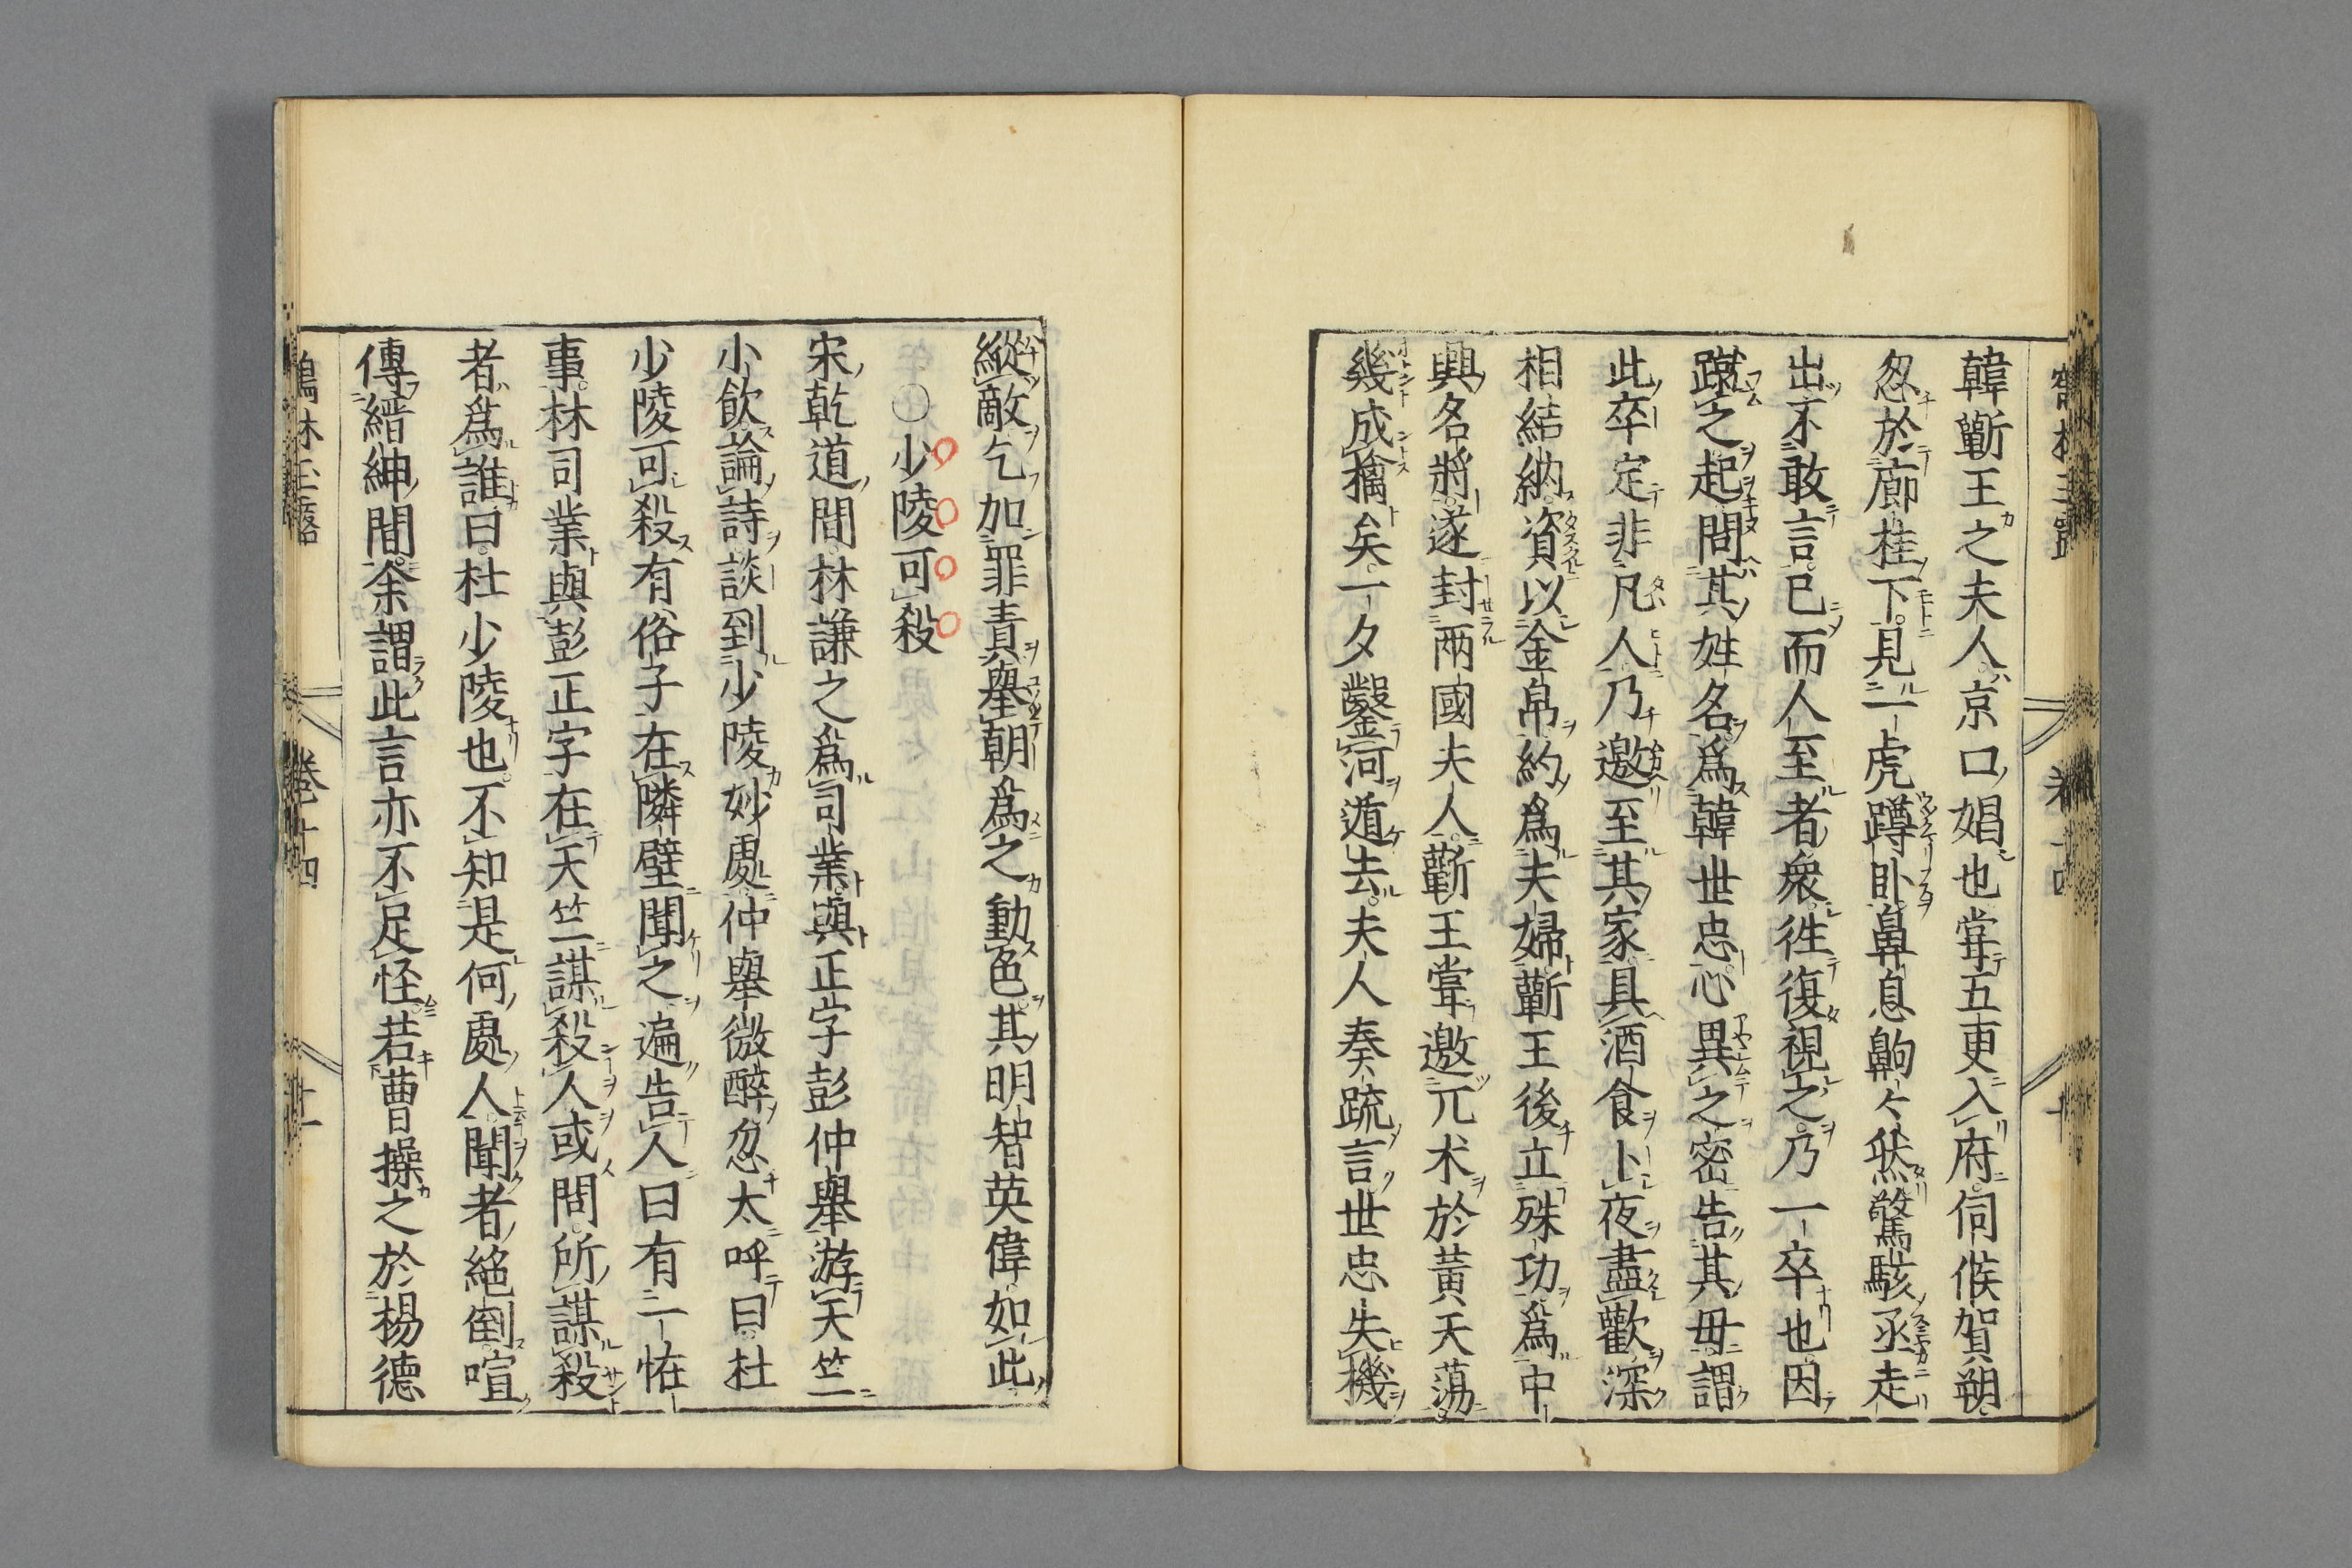 韓蘄王之夫人京口娼也甞五更入府伺候賀朔
忽於廊柱下見一虎蹲卧鼻息齁々然驚駭丞走
出不敢言已而人至者衆徃復視之乃一卒也因
蹴之起問其姓名爲韓世忠心異之密告其母謂
此卒定非凡人乃邀至其家具酒食卜夜盡歡深
相結納資以金帛約爲夫婦蘄王後立殊功爲中
興名將遂封兩國夫人蘄王甞邀兀术於黃天蕩
幾成擒矣一夕鑿河遁去夫人奏疏言世忠失機
縱敵乞加罪責舉朝爲之動色其明智英偉如此
○少陵可殺
宋乾道間林謙之爲司業與正字彭仲舉游天竺
小飲論詩談到少陵妙處仲舉微醉忽太呼曰杜
少陵可殺有俗子在隣壁聞之遍告人曰有一恠
事林司業與彭正字在天竺謀殺人或問所謀殺
者爲誰曰杜少陵也不知是何處人聞者絕倒喧
傳縉紳間余謂此言亦不足怪若曹操之於楊德
鶴林玉露 卷十四 十一